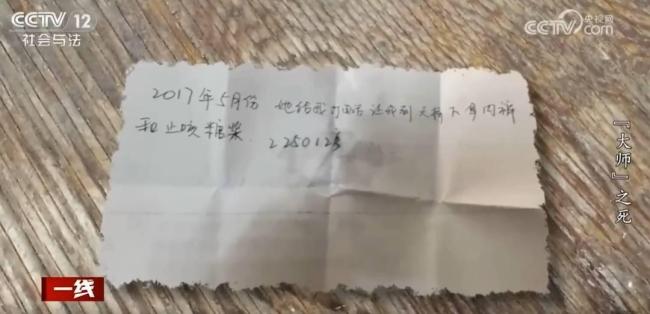 CCTV 12
社会与法
CCTV 央视网
com
2017年5月份 她给我打电话还命到天桥下身内裤
和止咳糖浆. 2250128
『大师』之死
一线